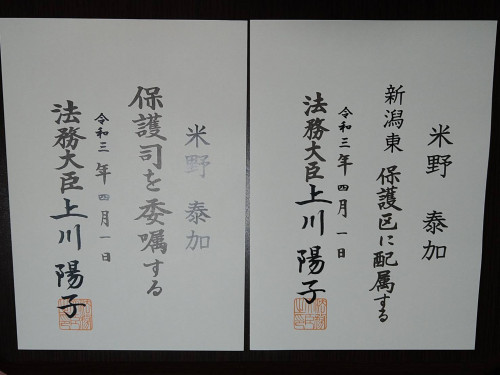 米野 泰加
新潟東 保護区に配属する
令和三年四月一日
法務大臣 上川 陽子
米野 泰加
保護司を委嘱する
令和三年四月一日
法務大臣 上川 陽子